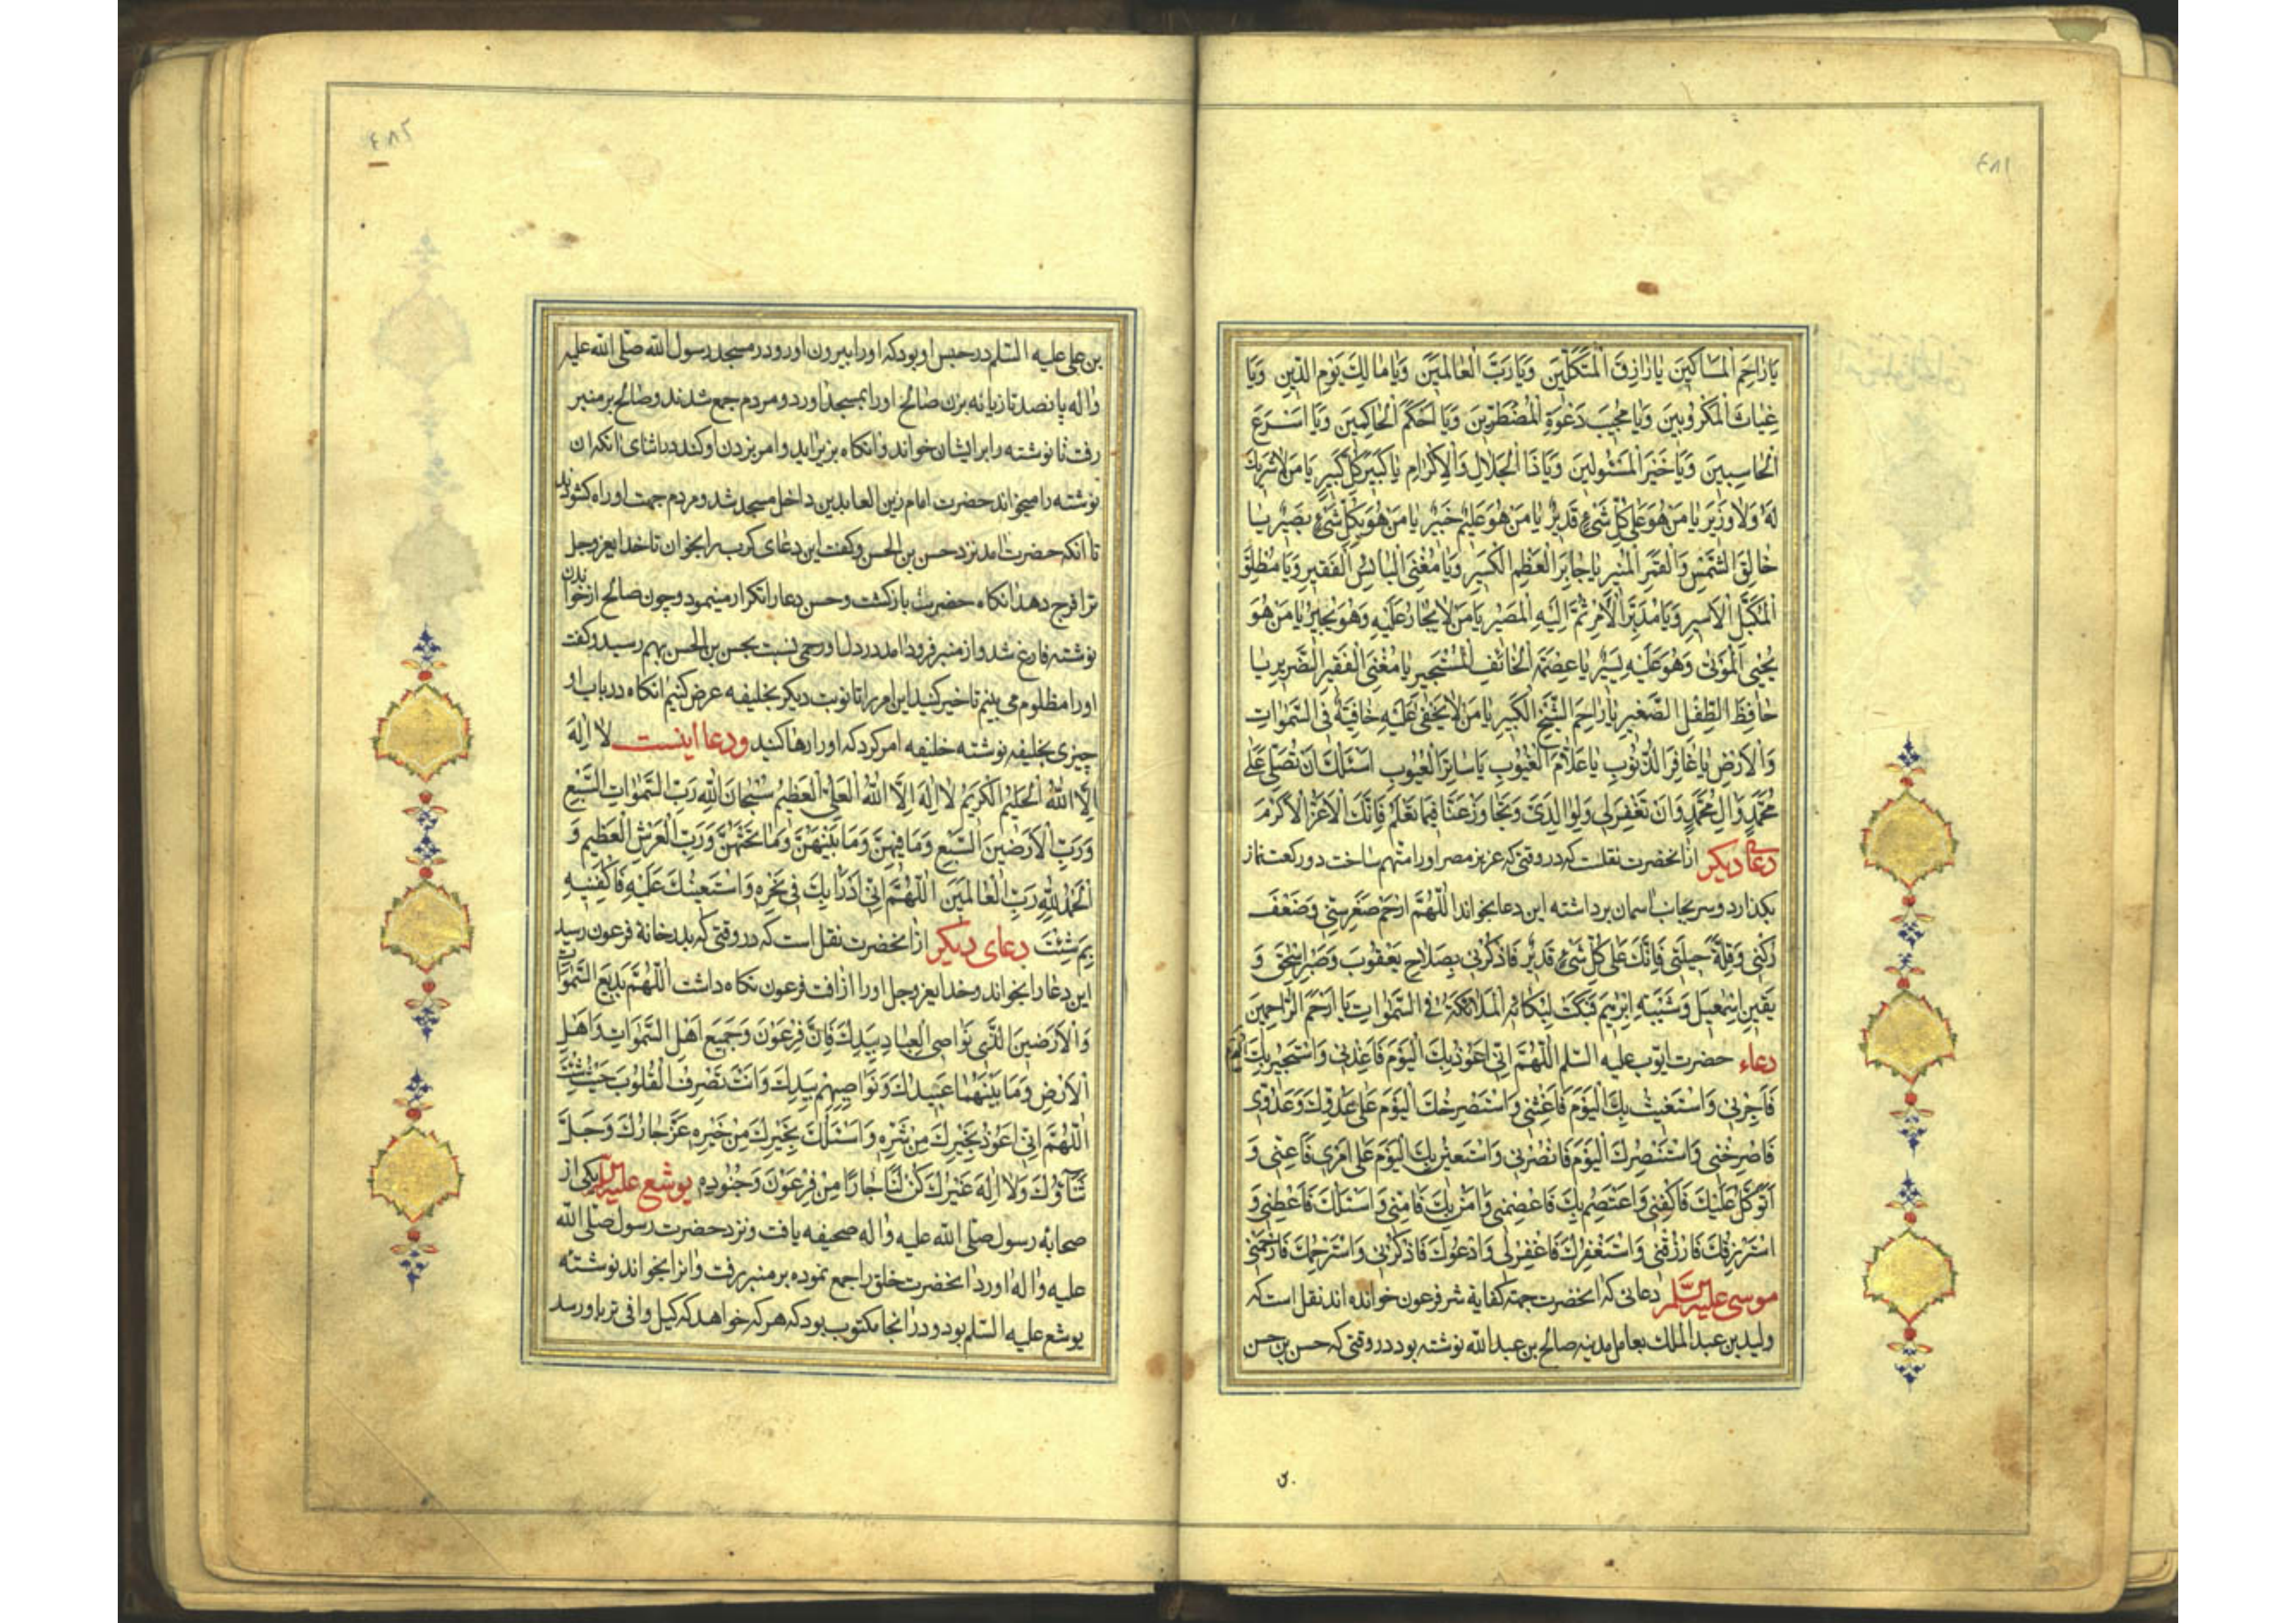 ٤٨١
يَا رَاحِمَ الْمَسَاكِينَ يَا رَازِقَ الْمُتَكَلِّمِينَ وَيَا رَبَّ الْعَالَمِينَ وَيَا مَالِكَ يَوْمِ الدِّينِ وَيَا
غِيَاثَ الْمَكْرُوبِينَ وَيَا مُجِيبَ دَعْوَةِ الْمُضْطَرِّينَ وَيَا اَحْكَمَ الْحَاكِمِينَ وَيَا اَسْرَعَ
الْحَاسِبِينَ وَيَا خَيْرَ الْمَسْئُولِينَ وَيَا ذَا الْجَلَالِ وَالْاِكْرَامِ يَا كَبِيرَ كُلِّ كَبِيرٍ يَا مَنْ لَا شَرِيكَ
لَهُ وَلَا وَزِيرَ يَا مَنْ هُوَ عَلٰى كُلِّ شَيْءٍ قَدِيرٌ يَا مَنْ هُوَ عَلِيمٌ خَبِيرٌ يَا مَنْ هُوَ بِكُلِّ شَيْءٍ بَصِيرٌ يَا
خَالِقَ الشَّمْسِ وَالْقَمَرِ الْمُنِيرِ يَا جَابِرَ الْعَظْمِ الْكَسِيرِ وَيَا مُغْنِيَ الْبَائِسِ الْفَقِيرِ وَيَا مُطْلِقَ
الْمُكَبَّلِ الْاَسِيرِ وَيَا مُدَبِّرَ الْاَمْرِ ثُمَّ اِلَيْهِ الْمَصِيرُ يَا مَنْ لَا يُجَارُ عَلَيْهِ وَهُوَ يُجِيرُ يَا مَنْ هُوَ
يُحْيِي الْمَوْتٰى وَهُوَ عَلَيْهِ يَسِيرٌ يَا عِصْمَةَ الْخَائِفِ الْمُسْتَجِيرِ يَا مُغْنِيَ الْفَقِيرِ الضَّرِيرِ يَا
حَافِظَ الطِّفْلِ الصَّغِيرِ يَا رَاحِمَ الشَّيْخِ الْكَبِيرِ يَا مَنْ لَا يَخْفٰى عَلَيْهِ خَافِيَةٌ فِي السَّمٰوَاتِ
وَالْاَرْضِ يَا غَافِرَ الذُّنُوبِ يَا عَلَّامَ الْغُيُوبِ يَا سَاتِرَ الْعُيُوبِ اَسْئَلُكَ اَنْ تُصَلِّيَ عَلٰى
مُحَمَّدٍ وَاٰلِ مُحَمَّدٍ وَاَنْ تَغْفِرَ لِي وَلِوَالِدَيَّ وَتَجَاوَزْ عَنَّا فِيمَا تَعْلَمُ فَاِنَّكَ الْاَعَزُّ الْاَكْرَمُ
دعای دیکر ازانحضرت نقلست که در وقتی که عزیز مصر اورا متهم ساخت دو رکعت نماز
بکذارد و سر بجانب اسمان برداشته این دعا بخواند اَللّٰهُمَّ ارْحَمْ صِغَرَ سِنِّي وَضَعْفَ
رُكْنِي وَقِلَّةَ حِيلَتِي فَاِنَّكَ عَلٰى كُلِّ شَيْءٍ قَدِيرٌ فَاذْكُرْنِي بِصَلَاحِ يَعْقُوبَ وَصَبْرِ اِسْحٰقَ وَ
يَقِينِ اِسْمٰعِيلَ وَشَيْبَةِ اِبْرٰهِيمَ فَبَكَتْ لِبُكَائِهِ الْمَلَائِكَةُ فِي السَّمٰوَاتِ يَا اَرْحَمَ الرَّاحِمِينَ
دعاء حضرت ایوب علیه السلم اَللّٰهُمَّ اِنِّي اَعُوذُ بِكَ الْيَوْمَ فَاَعِذْنِي وَاَسْتَجِيرُ بِكَ الْيَوْمَ
فَاَجِرْنِي وَاَسْتَغِيثُ بِكَ الْيَوْمَ فَاَغِثْنِي وَاَسْتَصْرِخُكَ الْيَوْمَ عَلٰى عَدُوِّكَ وَعَدُوِّي
فَاصْرُخْنِي وَاَسْتَنْصِرُكَ الْيَوْمَ فَانْصُرْنِي وَاَسْتَعِينُ بِكَ الْيَوْمَ عَلٰى اَمْرِي فَاَعِنِّي وَ
اَتَوَكَّلُ عَلَيْكَ فَاكْفِنِي وَاَعْتَصِمُ بِكَ فَاعْصِمْنِي وَاٰمَنُ بِكَ فَاٰمِنِّي وَاَسْئَلُكَ فَاَعْطِنِي وَ
اَسْتَرْزِقُكَ فَارْزُقْنِي وَاَسْتَغْفِرُكَ فَاغْفِرْ لِي وَاَدْعُوكَ فَاذْكُرْنِي وَاَسْتَرْحِمُكَ فَارْحَمْنِي
موسی علیه السلم دعائی که انحضرت جهة کفایة شر فرعون خوانده اند نقل است که
ولید بن عبد الملک بعامل مدینه صالح بن عبد الله نوشته بود در وقتی که حسن بن حسن
٤٨٢
بن علی علیه السلم در حبس او بود که اورا بیرون اورد و در مسجد رسول الله صلی الله علیه
واله پانصد تازیانه بزن صالح اورا بمسجد اورد و مردم جمع شدند و صالح بر منبر
رفت تا نوشته را بر ایشان خواند وانکاه بزیر اید و امر بزدن او کند در اثنای انکه ان
نوشته را میخواند حضرت امام زین العابدین داخل مسجد شد و مردم جهت او راه کشودند
تا انکه حضرت امد نزد حسن بن الحسن و کفت این دعای کرب را بخوان تا خدایعزوجل
ترا فرج دهد انکاه حضرت بازکشت و حسن دعا را تکرار مینمود و چون صالح از خواندن
نوشته فارغ شد و از منبر فرود امد در دل او رحمی نسبت بحسن بن الحسن بهم رسید و کفت
اورا مظلوم می بینم تاخیر کنید این امر را تا نوبت دیکر بخلیفه عرض کنیم انکاه در باب او
چیزی بخلیفه نوشته خلیفه امر کرد که اورا رها کنید ودعا اینست لَا اِلٰهَ
اِلَّا اللّٰهُ الْحَلِيمُ الْكَرِيمُ لَا اِلٰهَ اِلَّا اللّٰهُ الْعَلِيُّ الْعَظِيمُ سُبْحَانَ اللّٰهِ رَبِّ السَّمٰوَاتِ السَّبْعِ
وَرَبِّ الْاَرَضِينَ السَّبْعِ وَمَا فِيهِنَّ وَمَا بَيْنَهُنَّ وَمَا تَحْتَهُنَّ وَرَبِّ الْعَرْشِ الْعَظِيمِ وَ
الْحَمْدُ لِلّٰهِ رَبِّ الْعَالَمِينَ اَللّٰهُمَّ اِنِّي اَدْرَاُ بِكَ فِي نَحْرِهِ وَاَسْتَعِينُكَ عَلَيْهِ فَاكْفِنِيهِ
بِمَ شِئْتَ دعای دیکر ازانحضرت نقل است که در وقتی که بدر خانه فرعون رسید
این دعا را بخواند و خدایعزوجل اورا از افت فرعون نکاه داشت اَللّٰهُمَّ بَدِيعَ السَّمٰوَاتِ
وَالْاَرَضِينَ الَّذِي نَوَاصِي الْعِبَادِ بِيَدِكَ فَاِنَّ فِرْعَوْنَ وَجَمِيعَ اَهْلِ السَّمٰوَاتِ وَاَهْلِ
الْاَرْضِ وَمَا بَيْنَهُمَا عَبِيدُكَ وَنَوَاصِيهِمْ بِيَدِكَ وَاَنْتَ تَصْرِفُ الْقُلُوبَ حَيْثُ شِئْتَ
اَللّٰهُمَّ اِنِّي اَعُوذُ بِخَيْرِكَ مِنْ شَرِّهِ وَاَسْئَلُكَ بِخَيْرِكَ مِنْ خَيْرِهِ عَزَّ جَارُكَ وَجَلَّ
ثَنَاؤُكَ وَلَا اِلٰهَ غَيْرُكَ كُنْ لَنَا جَارًا مِنْ فِرْعَوْنَ وَجُنُودِهِ یوشع علیه السلم یکی از
صحابه رسول صلی الله علیه واله صحیفه یافت و نزد حضرت رسول صلی الله
علیه واله اورد انحضرت خلق را جمع نموده بر منبر رفت وانرا بخواند نوشته
یوشع علیه السلم بود و در انجا مکتوب بود که هر که خواهد که کیل وافی تر باو رسد